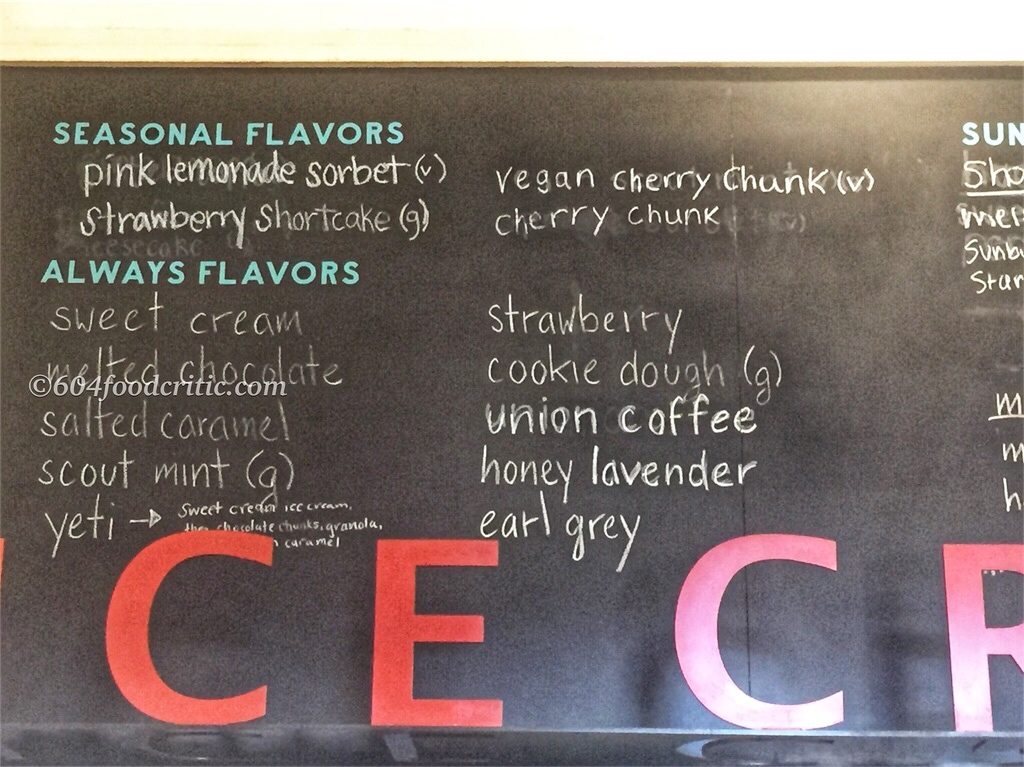 SEASONAL FLAVORS
pink lemonade sorbet (v)
strawberry shortcake (g)
vegan cherry chunk (v)
cherry chunk
ALWAYS FLAVORS
sweet cream
melted chocolate
salted caramel
scout mint (g)
yeti → sweet cream ice cream,
chocolate chunks, granola,
caramel
strawberry
cookie dough (g)
union coffee
honey lavender
earl grey
SUN
Sho
mer
Sunbu
Star
m
m
h
©604foodcritic.com
CE CR